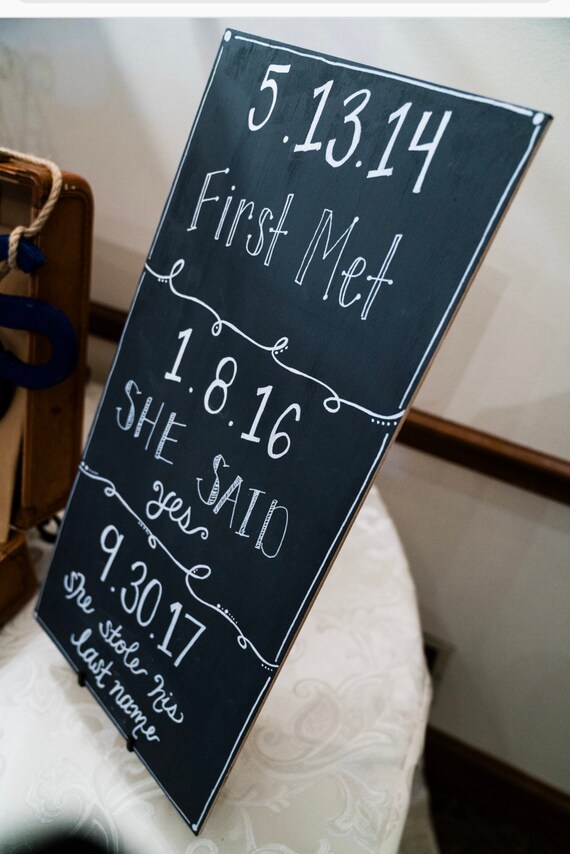 5.13.14
First Met
1.8.16
SHE SAID
yes
9.30.17
she stole his
last name